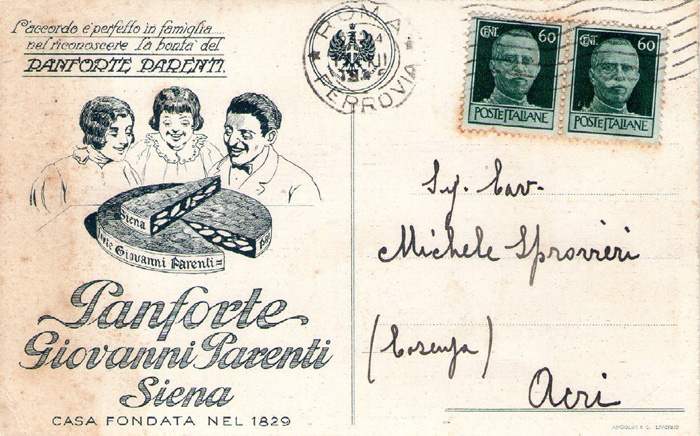 L'accordo è perfetto in famiglia....
nel riconoscere la bontà del
PANFORTE PARENTI
Siena
Giovanni Parenti=
Panforte
Giovanni Parenti
Siena
CASA FONDATA NEL 1829
ROMA
FERROVIA
CENT. 60
POSTE ITALIANE
CENT. 60
POSTE ITALIANE
Sig. Cav.
Michele Sprovieri
(Cosenza)
Acri